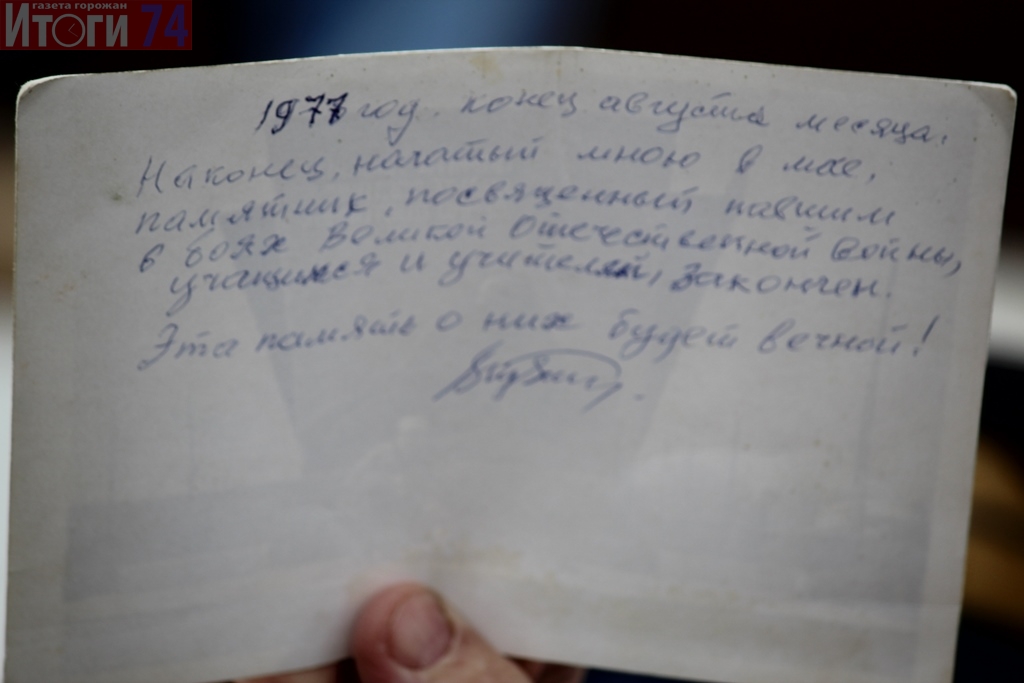 газета горожан
Итоги 74
1977 год. конец августа месяца.
Наконец, начатый мною в мае,
памятник, посвященный павшим
в боях Великой Отечественной Войны,
учащимся и учителям, закончен.
Эта память о них будет вечной!